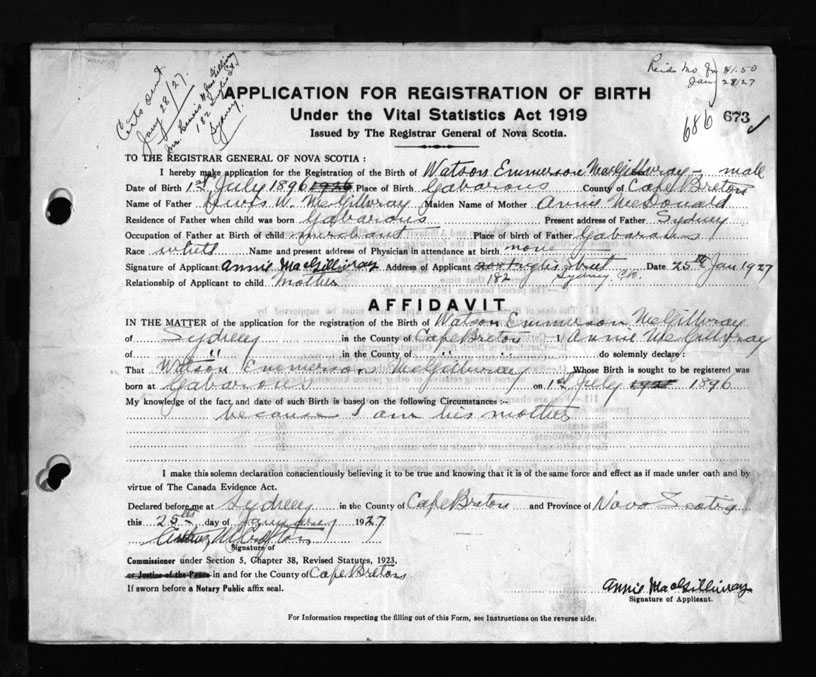 Certs sent
Jany 28/27.
Mrs Lewis W McGillivray
182
Sydney.
Jany 28/27
$1.50
686 673
APPLICATION FOR REGISTRATION OF BIRTH
Under the Vital Statistics Act 1919
Issued by The Registrar General of Nova Scotia.
TO THE REGISTRAR GENERAL OF NOVA SCOTIA :
I hereby make application for the Registration of the Birth of Watson Emmerson MacGillivray - male
Date of Birth 1st July 1896 1926 Place of Birth Gabarous County of Cape Breton
Name of Father Lewis W. McGillivray Maiden Name of Mother Annie McDonald
Residence of Father when child was born Gabarous Present address of Father Sydney
Occupation of Father at Birth of child merchant Place of birth of Father Gabarous
Race white Name and present address of Physician in attendance at birth none
Signature of Applicant Annie MacGillivray Address of Applicant Street Date 25th Jan 1927
Relationship of Applicant to child Mother 182 Sydney C.B.
AFFIDAVIT
IN THE MATTER of the application for the registration of the Birth of Watson Emmerson McGillivray
of Sydney in the County of Cape Breton I Annie McGillivray
of Sydney " in the County of " " do solemnly declare :
That Watson Emmerson McGillivray Whose Birth is sought to be registered was
born at Gabarous on 1st July 192 1896
My knowledge of the fact, and date of such Birth is based on the following Circumstances :-
because I am his mother
I make this solemn declaration conscientiously believing it to be true and knowing that it is of the same force and effect as if made under oath and by
virtue of The Canada Evidence Act.
Declared before me at Sydney in the County of Cape Breton and Province of Nova Scotia
this 25th day of January 1927
Signature of
Commissioner under Section 5, Chapter 38, Revised Statutes, 1923,
or Justice of the Peace in and for the County of Cape Breton
If sworn before a Notary Public affix seal.
Annie MacGillivray
Signature of Applicant.
For Information respecting the filling out of this Form, see Instructions on the reverse side.